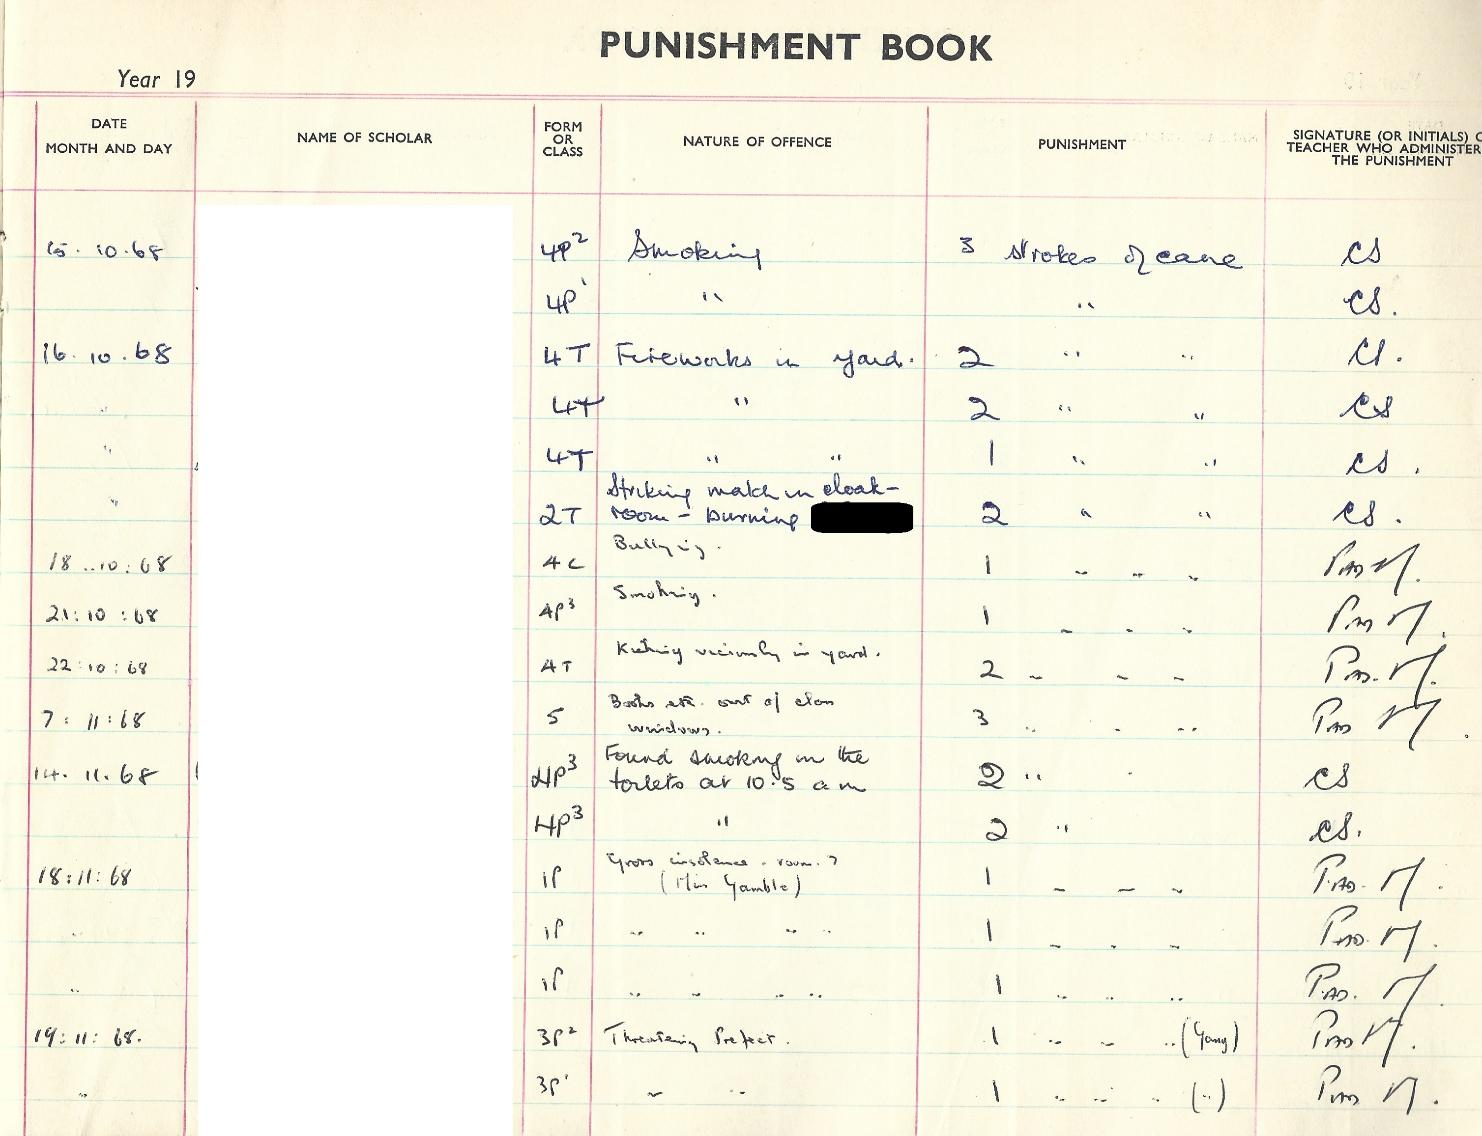 PUNISHMENT BOOK
Year 19
DATE MONTH AND DAY NAME OF SCHOLAR FORM OR CLASS NATURE OF OFFENCE PUNISHMENT SIGNATURE (OR INITIALS) TEACHER WHO ADMINISTER THE PUNISHMENT
15.10.68 4P2 Smoking 3 strokes of cane CS
4P1 " " CS.
16.10.68 4T Fireworks in yard. 2 " " CS.
" 4T " 2 " " CS
" 4T " " 1 " " CS.
Striking match in cloak-
" 2T room - burning 2 " " CS.
18..10:68 4C Bullying. 1 " " "
21:10:68 4P3 Smoking. 1 " " "
22:10:68 4T Kicking viciously in yard. 2 " " "
7:11:68 5 Books etc. out of class 3 " " "
windows.
14.11.68 4P3 Found smoking in the 2 " " CS
toilets at 10.5 a m
4P3 " 2 " CS.
18:11:68 1P Gross insolence - room. 7 1 " " "
(Miss Gamble)
" 1P " " " " 1 " " "
" 1P " " " " 1 " " "
19:11:68. 3P2 Threatening Prefect. 1 " " " (Gang)
" 3P1 " " 1 " " " (")